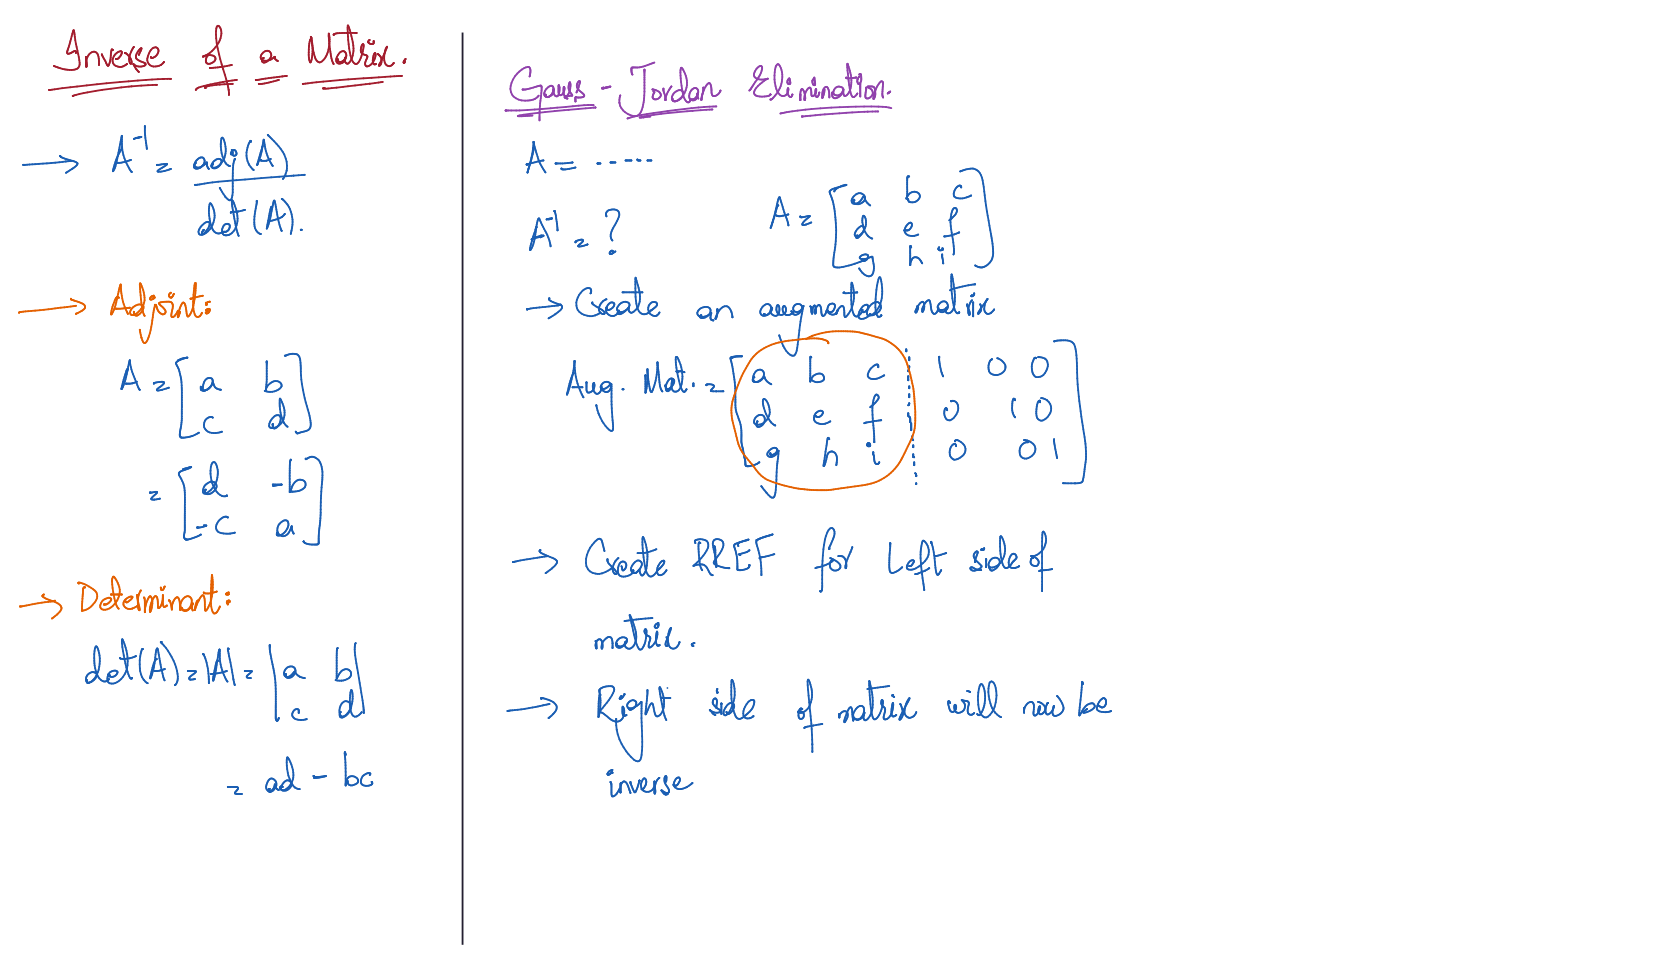 Inverse of a Matrix.
→ A⁻¹ = adj(A)
det(A).
→ Adjoint:
A = [a b
c d]
= [d -b
-c a]
→ Determinant:
det(A) = |A| = |a b
c d|
= ad - bc
Gauss - Jordan Elimination.
A = .....
A⁻¹ = ?
A = [a b c
d e f
g h i]
→ Create an augmented matrix
Aug. Mat. = [a b c 1 0 0
d e f 0 1 0
g h i 0 0 1]
→ Create RREF for Left side of
matrix.
→ Right side of matrix will now be
inverse